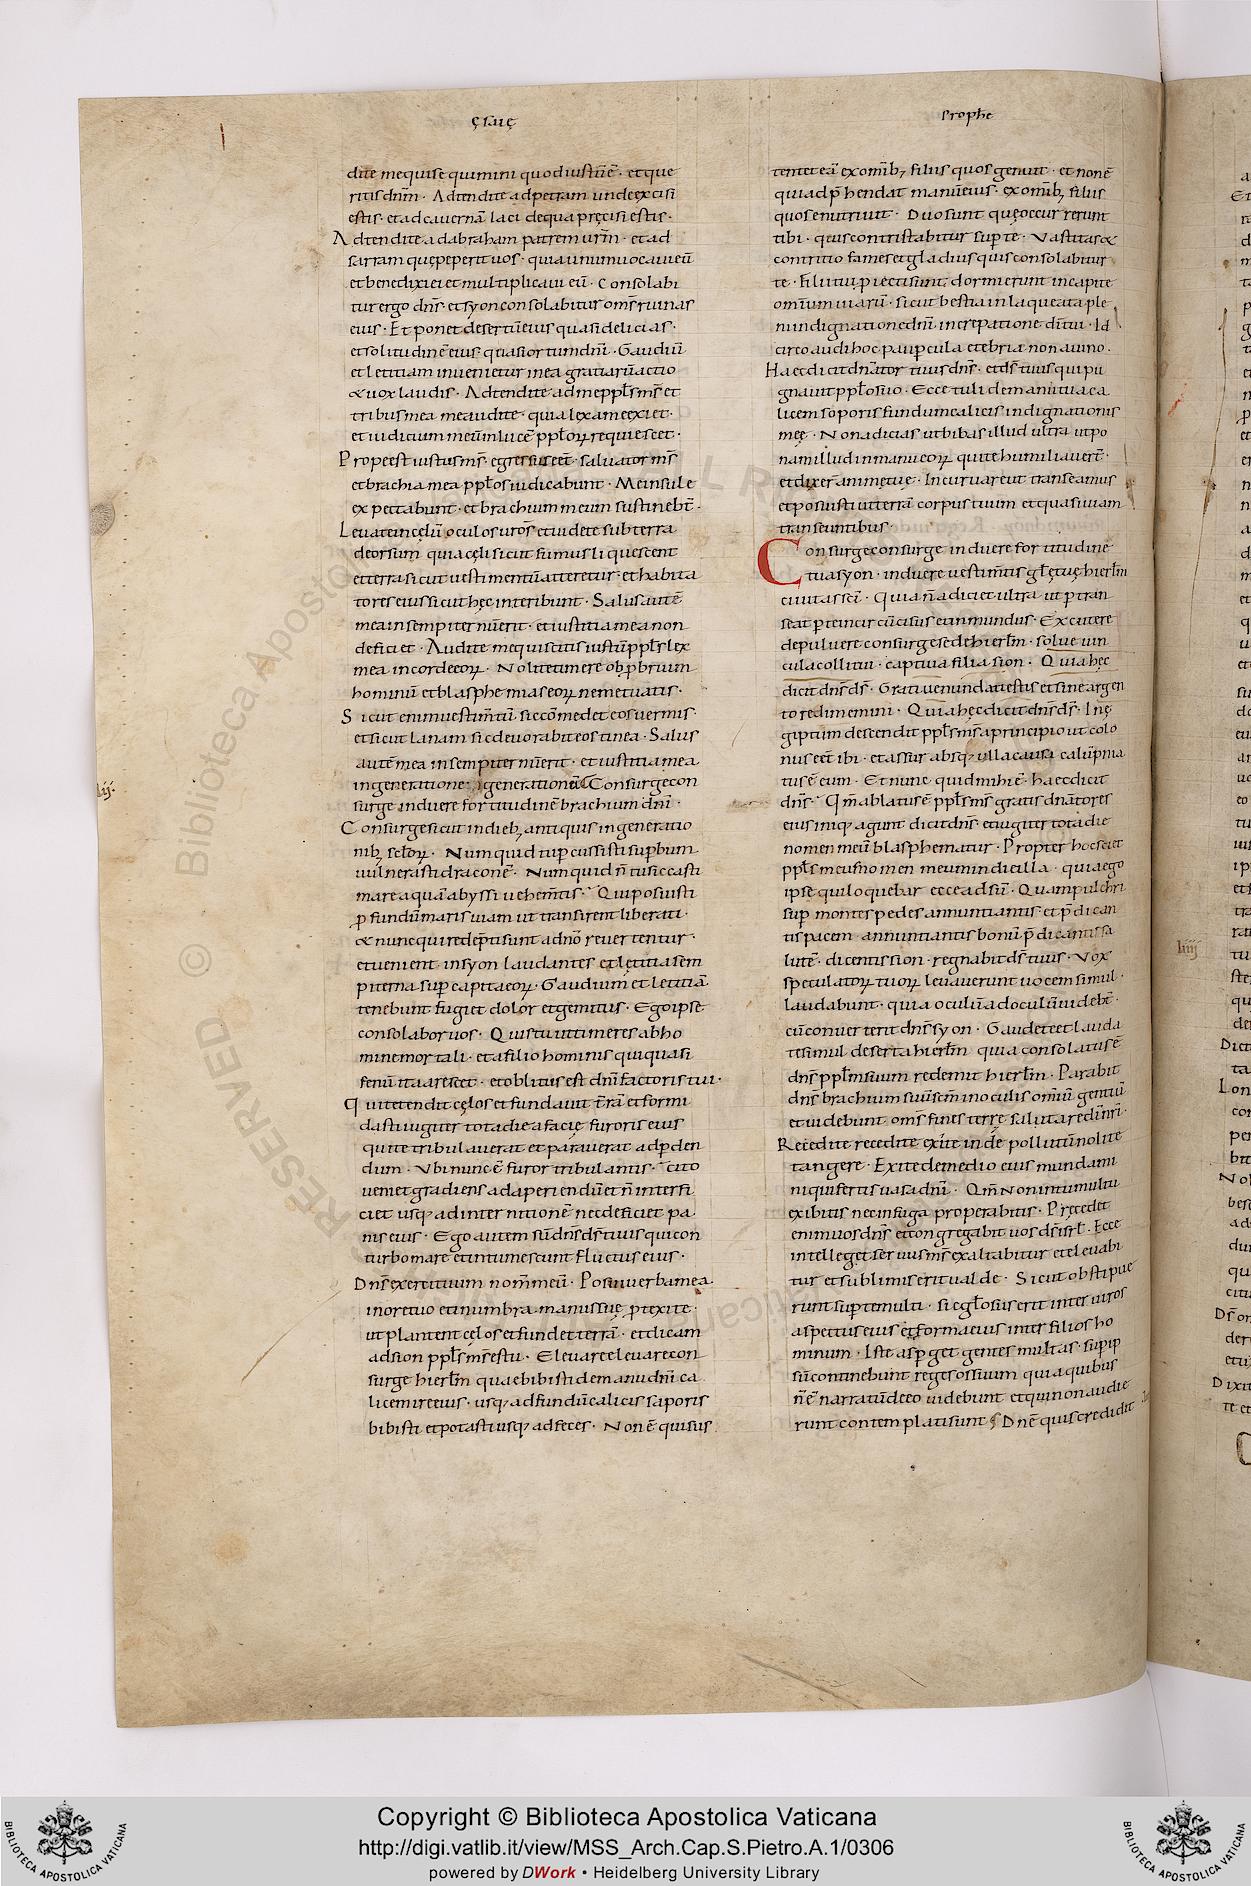 ęsaię
dite me qui seq̄uimini quod iustū ē · et que
ritis dn̄m · Adtendite ad petram unde excisi
estis · et ad cavernā laci de qua pręcisi estis ·
Adtendite ad abraham patrem ur̄m · et ad
sarram quę peperit uos · quia unum uocaui eū
et benedixi ei et multiplicaui eū · Consolabi
tur ergo dn̄s · et syon consolabitur om̄s ruinas
eius · Et ponet desertū eius quasi delicias ·
et solitudinē eius quasi ortum dn̄i · Gaudiū
et letitiam inuenietur in ea gratiarū actio
& uox laudis · Adtendite ad me ppl̄s m̄s et
tribus mea me audite · quia lex a me exiet ·
et iudicium meū in lucē ppl̄oꝝ requiescet ·
Prope est iustus m̄s · egressus est · saluator m̄s
et brachia mea ppl̄os iudicabunt · Me insule
expectabunt · et brachium meum sustinebt̄ ·
Leuate in cęlū oculos ur̄os et uidete sub terra
deorsum quia cęli sicut fumus liquescent
et terra sicut uestimentū atteretur · et habita
tores eius sicut hęc interibunt · Salus autē
mea in sempiternū erit · et iustitia mea non
deficiet · Audite me qui scitis iustū ppl̄s lex
mea in corde eoꝝ · Nolite timere obꝓbrium
hominū et blasphemias eoꝝ ne metuatis ·
Sicut enim uestim̄tū sic cōmedet eos uermis ·
et sicut lanam sic deuorabit eos tinea · Salus
autē mea in sempiternū erit · et iustitia mea
in generatione · generationū Consurge con
surge induere fortitudinē brachium dn̄i ·
Consurge sicut in dieb; antiquis in generatio
nib; scl̄oꝝ · Num quid tu ꝑcussisti suꝑbum
uulnerasti draconē · Num quid n̄ tu siccasti
mare aquā abyssi uehem̄tis · Qui posuisti
ꝓfundū maris uiam ut transirent liberati ·
& nunc qui redēpti sunt a dn̄o reuertentur ·
et uenient in syon laudantes et lętitia sem
piterna suꝑ capita eoꝝ · Gaudium et letitiā
tenebunt fugiet dolor et gemitus · Ego ipse
consolabor uos · Quis tu ut timeres ab ho
mine mortali · et a filio hominis qui quasi
fenū ita arescet · et oblitus est dn̄i factoris tui ·
Qui tetendit cęlos et fundauit t̄rā et formi
dasti iugiter tota die a facię furoris eius
qui te tribulauerat et parauerat ad ꝑden
dum · Vbi nunc ē furor tribulantis · cito
ueniet gradiens ad aperiendū et n̄ interfi
ciet usq; ad internitionē nec deficiet pa
nis eius · Ego autem sū dn̄s ds̄ tuus qui con
turbo mare et intumescunt fluctus eius ·
Dn̄s exercituum nom̄ meū · Posui uerba mea
in ore tuo et in umbra manus suę ꝓtexi te ·
ut plantent cęlos et fundet terrā · et dicam
ad sion ppl̄s m̄s es tu · Eleuare eleuare con
surge hierl̄m quae bibisti de manu dn̄i ca
licem ire eius · usq; ad fundū calicis saporis
bibisti et potasti usq; ad feces · Non ē qui sus
prophe
tentet eā ex omīb; filiis quos genuit · et non ē
qui adp̄hendat manū eius · ex omīb; filiis
quos enutriuit · Duo sunt quę occurrerunt
tibi · quis contristabitur suꝑ te · Vastitas &
contritio fames et gladius quis consolabitur
te · Filii tui ꝓiecti sunt · dormierunt in capite
omnium uiarū · sicut bestia inlaqueata ple
ni indignatione dn̄i increpatione dī tui · Id
circo audi hoc pauꝑcula et ebria non a uino ·
Haec dicit dn̄ator tuus dn̄s · et ds̄ tuus qui pu
gnauit ppl̄o suo · Ecce tuli de manu tua ca
licem soporis fundum calicis indignationis
męę · Non adicias ut bibas illud ultra et po
nam illud in manu eoꝝ qui te humiliauert̄ ·
et dixer̄ animę tuę · Incuruare ut transeamus
et posuisti ut terrā corpus tuum et quasi uiam
transeuntibus ·
Consurge consurge induere fortitudine
tua syon · induere uestim̄tis gl̄ę tuę hierl̄m
ciuitas sc̄i · Quia n̄ adiciet ultra ut ꝑtran
seat ꝑ te incircūcisus et inmundus · Excutere
de puluere consurge sede hierl̄m · solue uin
cula colli tui · captiua filia sion · Quia hęc
dicit dn̄s ds̄ · Grati uenundati estis et sine argen
to redimemini · Quia hęc dicit dn̄s ds̄ · In ę
giptum descendit ppl̄s m̄s a principio ut colo
nus eēt ibi · et assur absq; ulla causa calūpnia
tus ē eum · Et nunc quid mihi ē · haec dicit
dn̄s · Qm̄ ablatus ē ppl̄s m̄s gratis dn̄atores
eius iniq; agunt dicit dn̄s · et iugiter tota die
nomen meū blasphematur · Propter hoc sciet
ppl̄s meus nomen meum in die illa · quia ego
ipse qui loquebar ecce adsū · Quam pulchri
suꝑ montes pedes annuntiantis · et p̄dican
tis pacem · annuntiantis bonū p̄dicantis sa
lutē · dicentis sion · regnabit ds̄ tuus · Vox
speculatoꝝ tuoꝝ leuauerunt uocem simul ·
laudabunt · quia oculū ad oculū uidebt̄ ·
cū conuerterit dn̄s syon · Gaudete et lauda
te simul deserta hierl̄m quia consolatus ē
dn̄s ppl̄m suum redemit hierl̄m · Parabit
dn̄s brachium suū scm̄ in oculis omīu gentiū
et uidebunt om̄s fines terrę salutare dī nr̄i ·
Recedite recedite exite inde pollutū nolite
tangere · Exite de medio eius mundami
ni qui fertis uasa dn̄i · Qm̄ Non in tumultu
exibitis nec in fuga properabitis · Pręcedet
enim uos dn̄s et congregabit uos ds̄ isrl̄ · Ecce
intelleget seruus m̄s exaltabitur et eleuabi
tur et sublimis erit ualde · Sicut obstipue
runt suꝑ te multi · sic ingl̄osus erit inter uiros
aspectus eius et forma eius inter filios ho
minum · Iste asꝑget gentes multas · suꝑ ip
sū continebunt reges os suum quia quibus
n̄ ē narratū de eo uidebunt et qui non audie
runt contemplati sunt Dn̄e quis credidit
lij·
liiij
Copyright © Biblioteca Apostolica Vaticana
http://digi.vatlib.it/view/MSS_Arch.Cap.S.Pietro.A.1/0306
powered by DWork • Heidelberg University Library
BIBLIOTECA APOSTOLICA VATICANA
BIBLIOTECA APOSTOLICA VATICANA